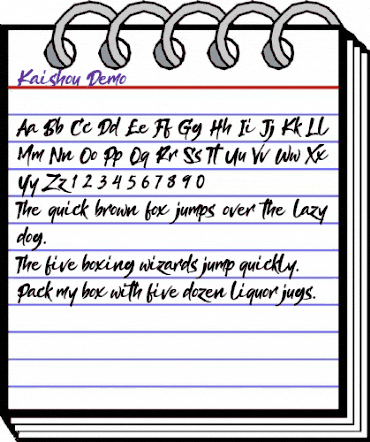 Kaishou Demo
Aa Bb Cc Dd Ee Ff Gg Hh Ii Jj Kk Ll
Mm Nn Oo Pp Qq Rr Ss Tt Uu Vv Ww Xx
Yy Zz 1 2 3 4 5 6 7 8 9 0
The quick brown fox jumps over the lazy
dog.
The five boxing wizards jump quickly.
Pack my box with five dozen liquor jugs.